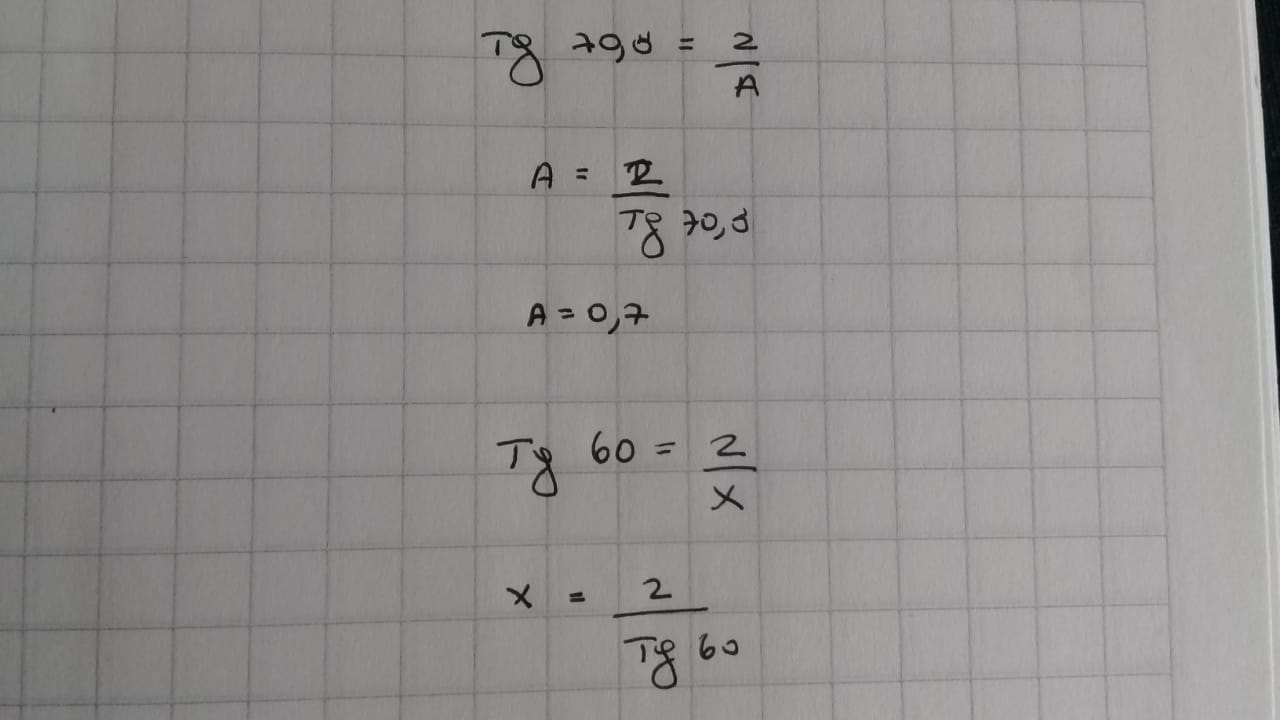 Tg 70,8 = 2/A
A = 2/Tg 70,8
A = 0,7
Tg 60 = 2/x
x = 2/Tg 60